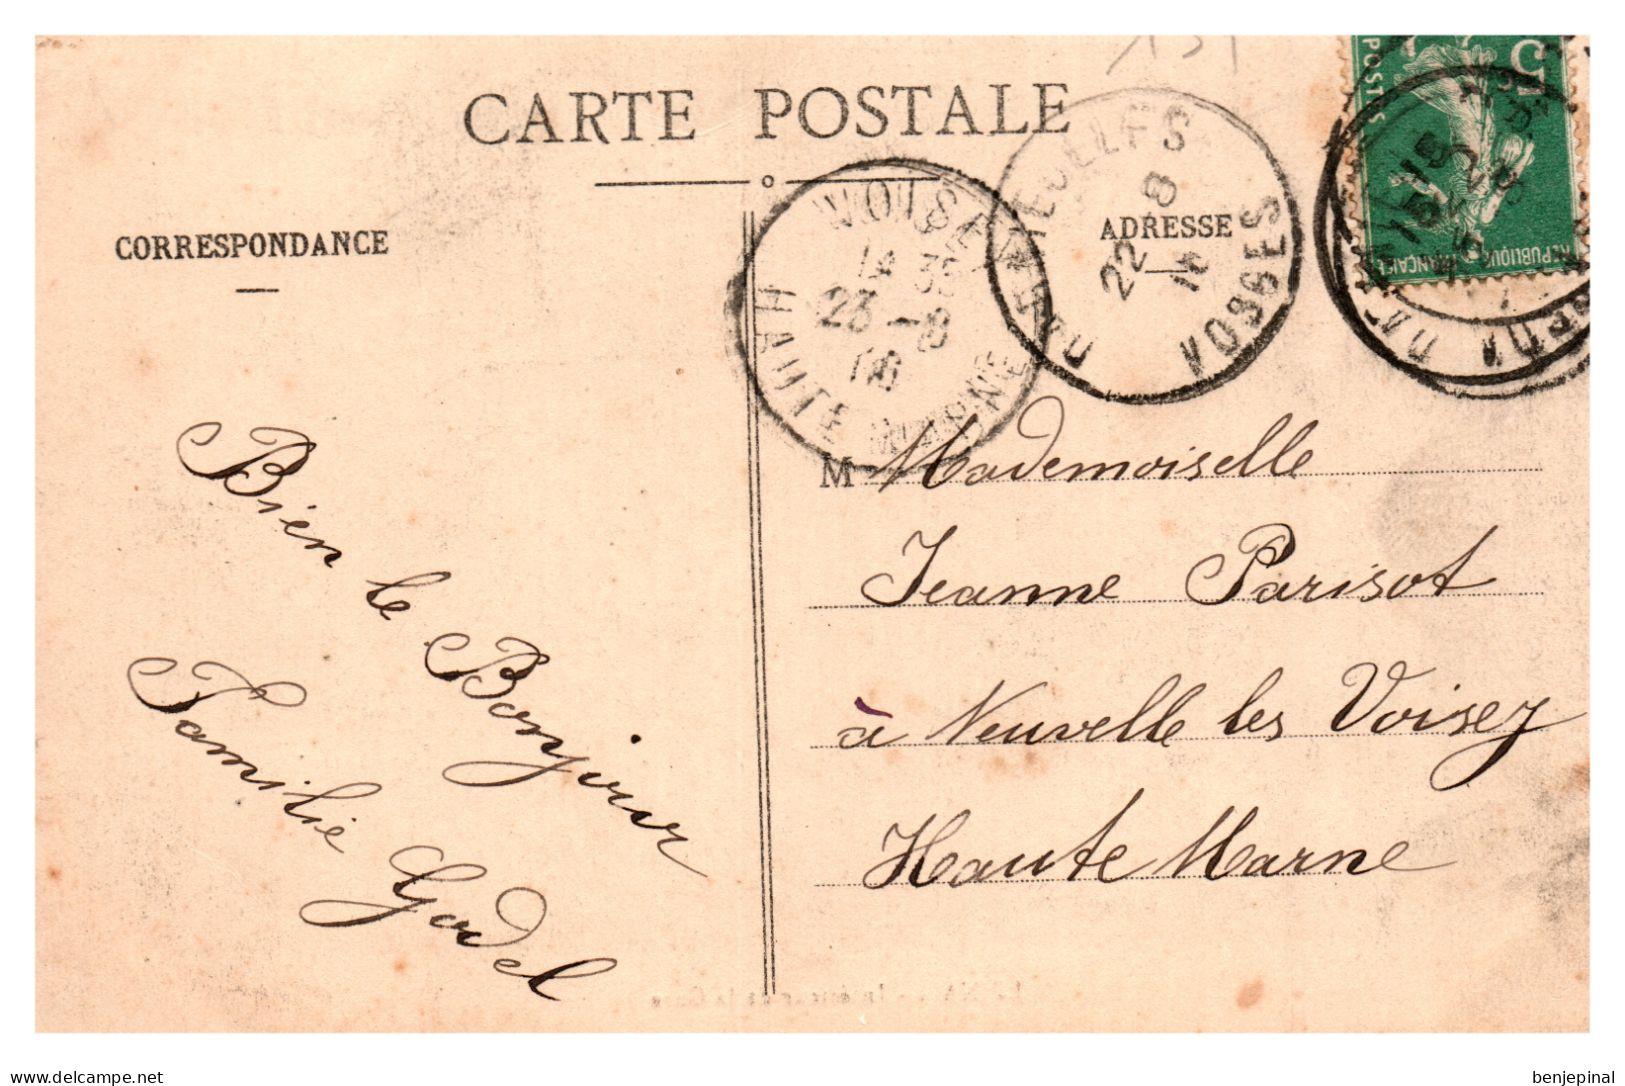 CARTE POSTALE
CORRESPONDANCE
ADRESSE
VOISEY
14 35
23 - 8
HAUTE MARNE
22 8
VOSGES
5
POSTES
REPUBLIQUE FRANÇAISE
Bien le Bonjour
Familie Godel
M Mademoiselle
Jeanne Parisot
à Neuvelle les Voisey
Haute Marne
www.delcampe.net
benjepinal